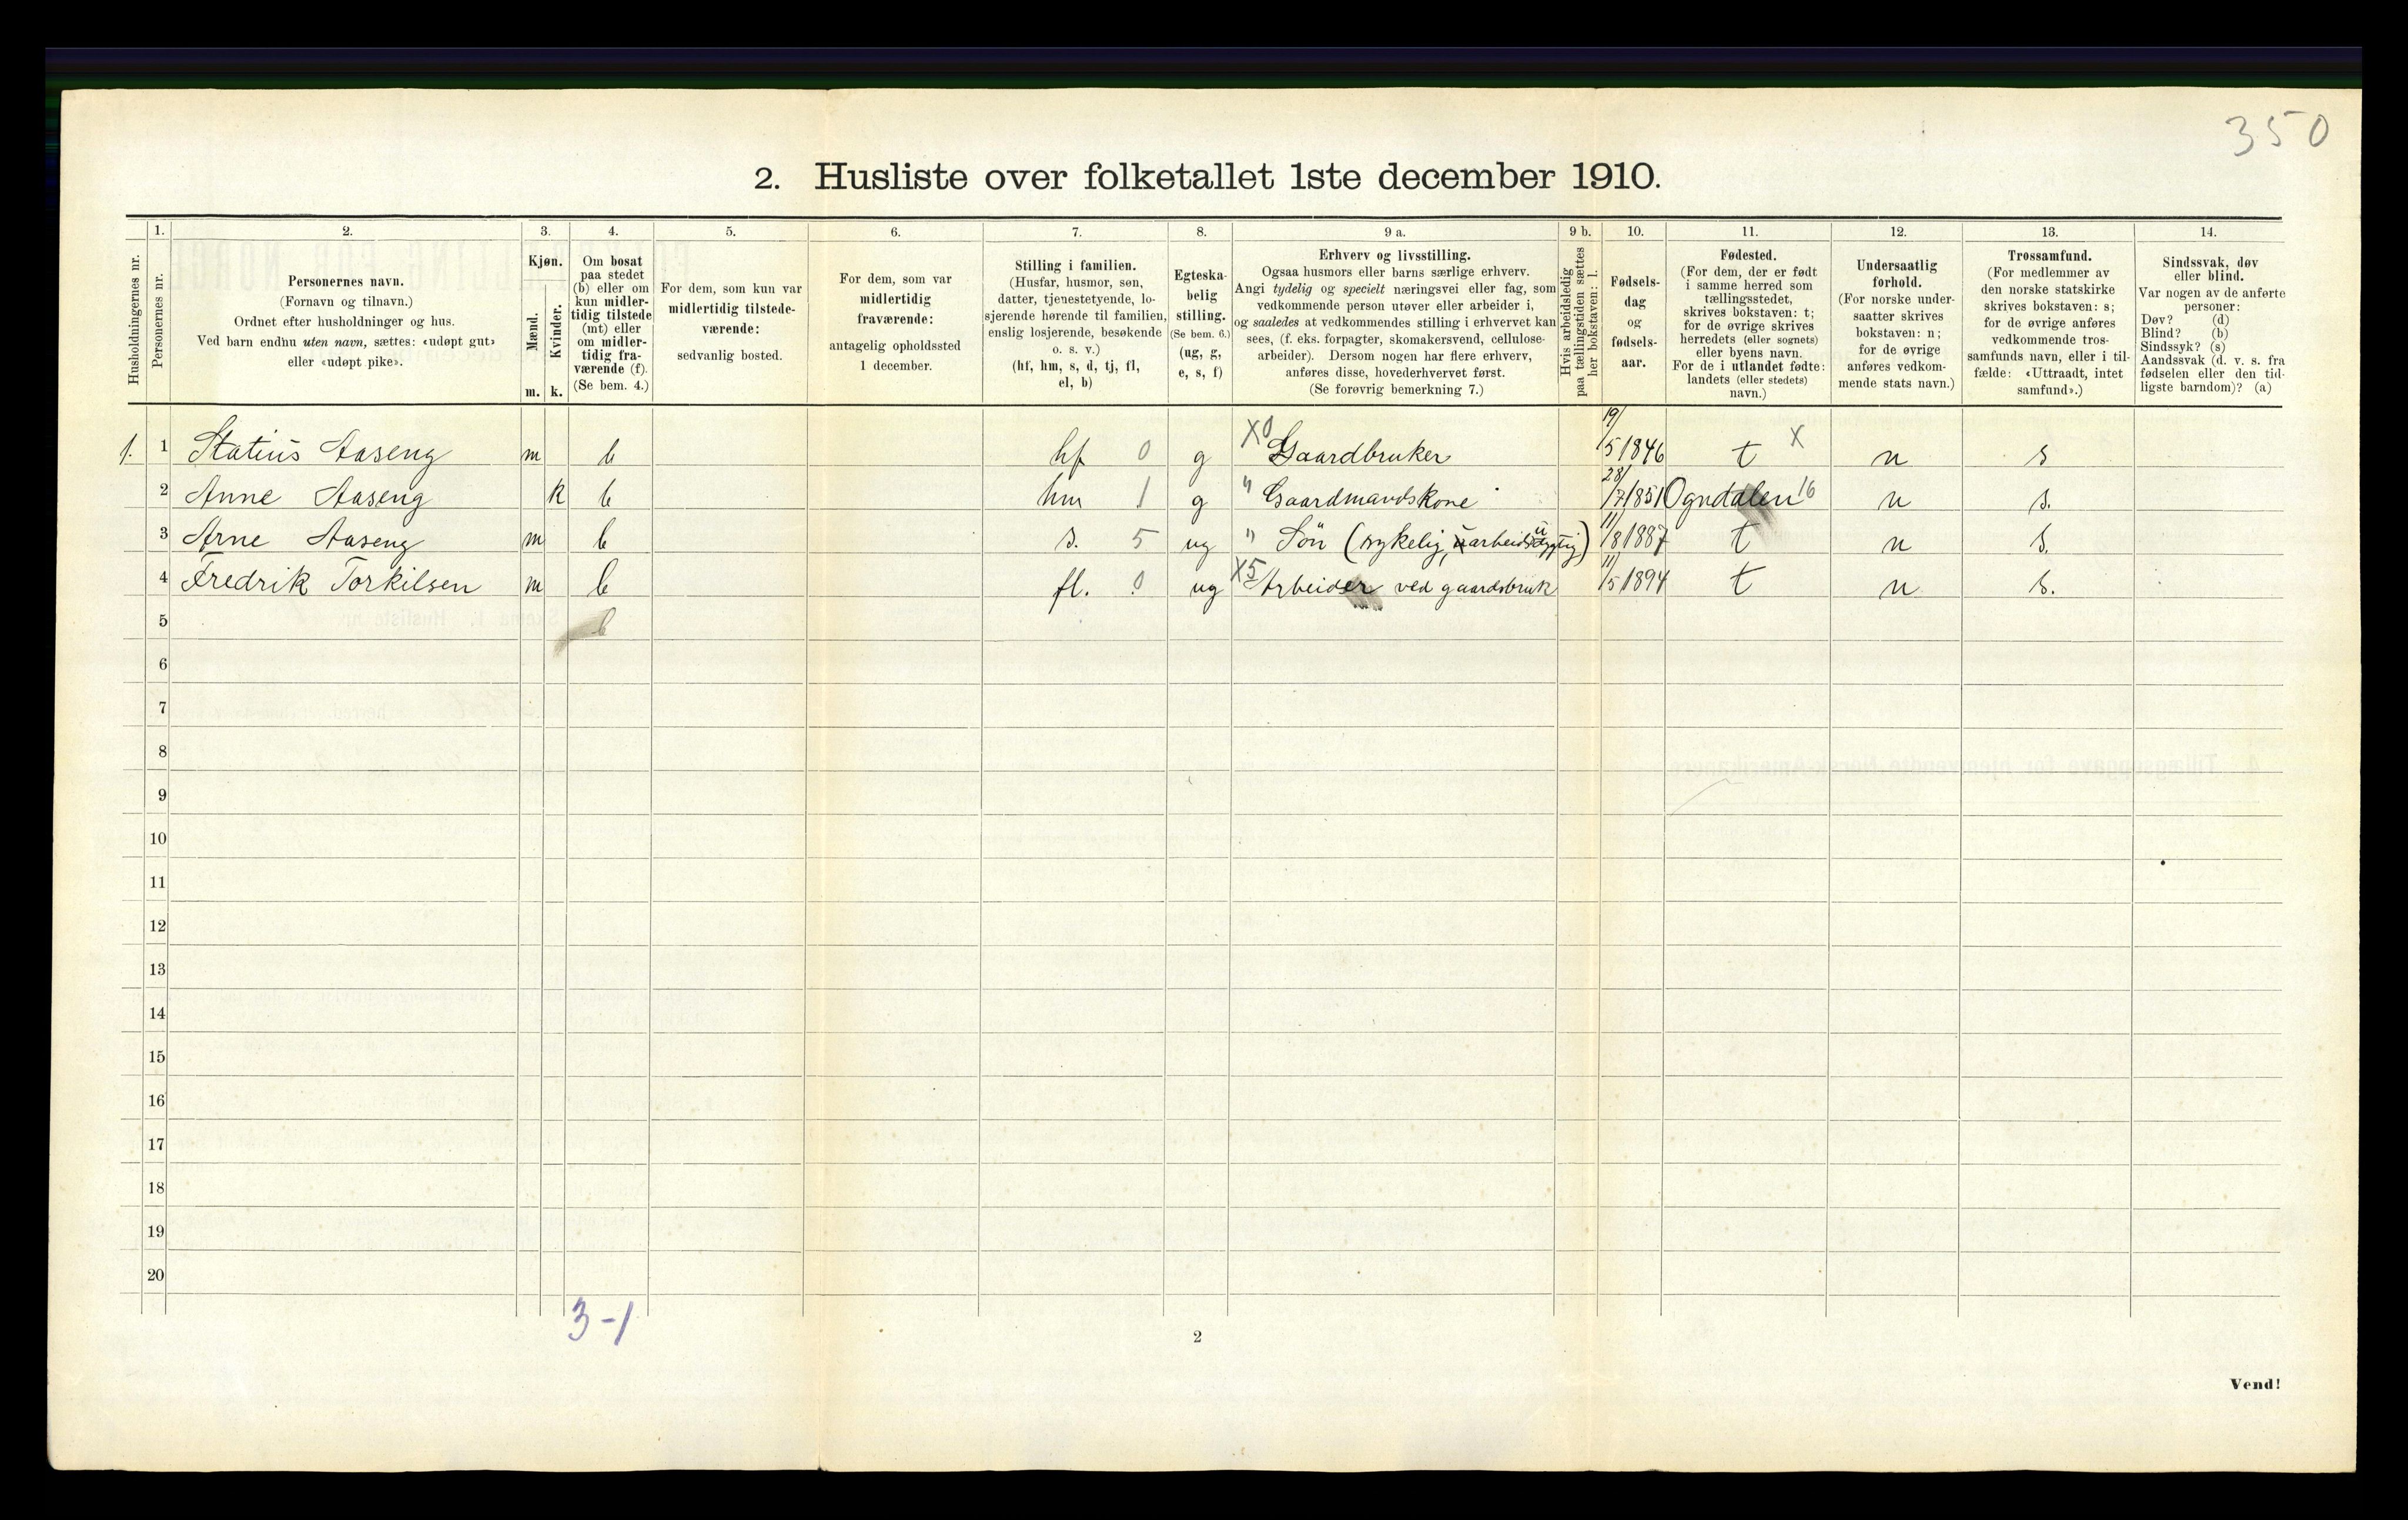 350
2. Husliste over folketallet 1ste december 1910.
Husholdningernes nr.
1.
Personernes nr.
2.
Personernes navn.
(Fornavn og tilnavn.)
Ordnet efter husholdninger og hus.
Ved barn endnu uten navn, sættes: «udøpt gut»
eller «udøpt pike».
3.
Kjøn.
Mænd.
Kvinder.
m. k.
4.
Om bosat
paa stedet
(b) eller om
kun midler-
tidig tilstede
(mt) eller
om midler-
tidig fra-
værende (f).
(Se bem. 4.)
5.
For dem, som kun var
midlertidig tilstede-
værende:
sedvanlig bosted.
6.
For dem, som var
midlertidig
fraværende:
antagelig opholdssted
1 december.
7.
Stilling i familien.
(Husfar, husmor, søn,
datter, tjenestetyende, lo-
sjerende hørende til familien,
enslig losjerende, besøkende
o. s. v.)
(hf, hm, s, d, tj, fl,
el, b)
8.
Egteska-
belig
stilling.
(Se bem. 6.)
(ug, g,
e, s, f)
9 a.
Erhverv og livsstilling.
Ogsaa husmors eller barns særlige erhverv.
Angi tydelig og specielt næringsvei eller fag, som
vedkommende person utøver eller arbeider i,
og saaledes at vedkommendes stilling i erhvervet kan
sees, (f. eks. forpagter, skomakersvend, cellulose-
arbeider). Dersom nogen har flere erhverv,
anføres disse, hovederhvervet først.
(Se forøvrig bemerkning 7.)
9 b.
Hvis arbeidsledig
paa tællingstiden sættes
her bokstaven: l.
10.
Fødsels-
dag
og
fødsels-
aar.
11.
Fødested.
(For dem, der er født
i samme herred som
tællingsstedet,
skrives bokstaven: t;
for de øvrige skrives
herredets (eller sognets)
eller byens navn.
For de i utlandet fødte:
landets (eller stedets)
navn.)
12.
Undersaatlig
forhold.
(For norske under-
saatter skrives
bokstaven: n;
for de øvrige
anføres vedkom-
mende stats navn.)
13.
Trossamfund.
(For medlemmer av
den norske statskirke
skrives bokstaven: s;
for de øvrige anføres
vedkommende tros-
samfunds navn, eller i til-
fælde: «Uttraadt, intet
samfund».)
14.
Sindssvak, døv
eller blind.
Var nogen av de anførte
personer:
Døv? (d)
Blind? (b)
Sindssyk? (s)
Aandssvak (d. v. s. fra
fødselen eller den tid-
ligste barndom)? (a)
1. 1 Statius Aaseng m b hf 0 g X0 Gaardbruker 19/5 1846 t X n s
2 Anne Aaseng k b hm 1 g " Gaardmandskone 28/7 1851 Ogndalen 16 n s.
3 Arne Aaseng m b s. 5 ug " Søn (sykelig, uarbeidsdygtig) 11/8 1887 t n s.
4 Fredrik Torkilsen m b fl. 0 ug X5 Arbeider ved gaardsbruk 11/5 1894 t n s.
5 b
6
7
8
9
10
11
12
13
14
15
16
17
18
19
20
3-1
2
Vend!